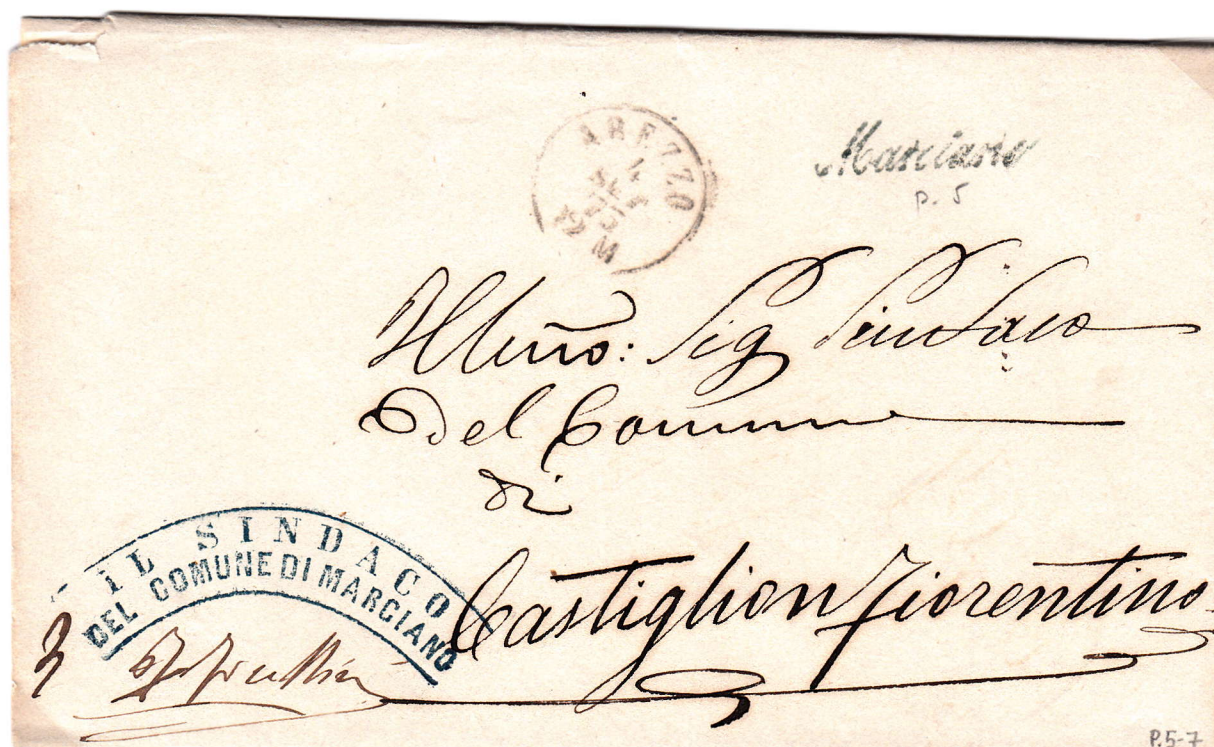 AREZZO
Marciano
p. 5
Illmo: Sig Sindaco
Del Comune
di
Castiglion Fiorentino
IL SINDACO
DEL COMUNE DI MARCIANO
P.5-7